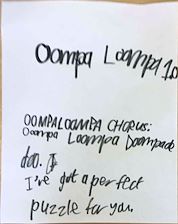 Oompa Loompa 1.0
OOMPALOOMPA CHORUS:
Oompa Loompa Doompade
doo. I
I've got a perfect
puzzle for you.